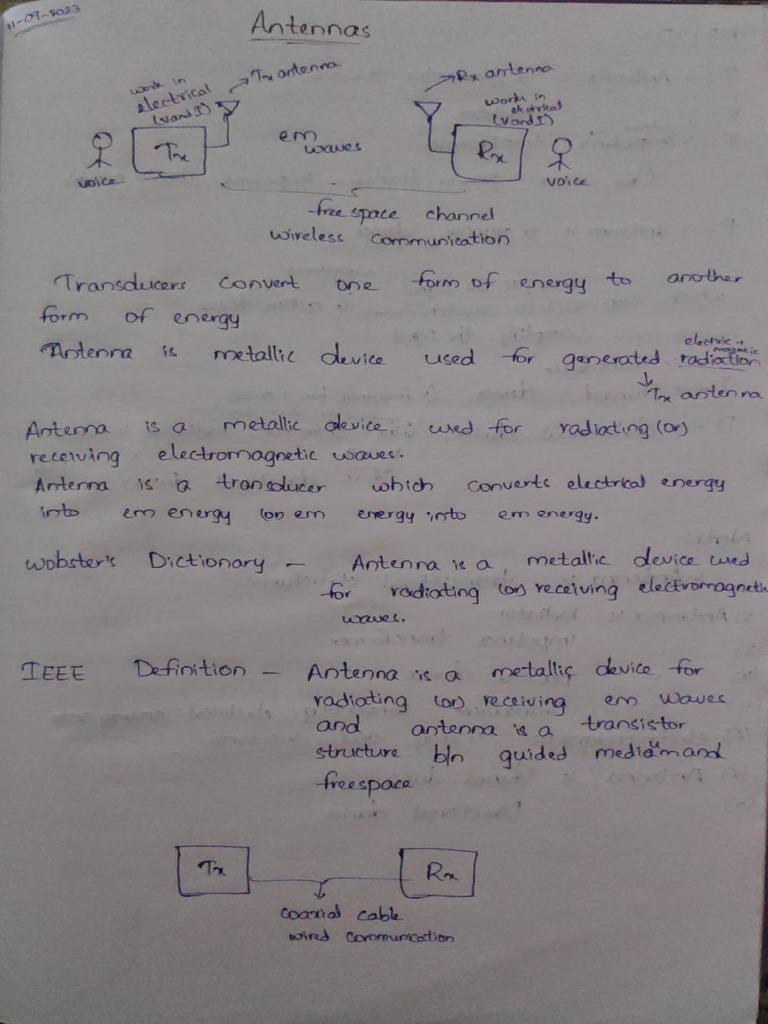 11-09-2023
Antennas
work in electrical (V and I)
→ Tx antenna
→ Rx antenna
work in electrical (V and I)
Tx
em waves
Rx
voice
voice
free space channel
wireless communication
Transducers convert one form of energy to another
form of energy
Antenna is metallic device used for generated electric + magnetic radiation
↓ Tx antenna
Antenna is a metallic device used for radiating (or)
receiving electromagnetic waves.
Antenna is a transducer which converts electrical energy
into em energy (or) em energy into em energy.
Wobster's Dictionary - Antenna is a metallic device used
for radiating (or) receiving electromagnetic
waves.
IEEE Definition - Antenna is a metallic device for
radiating (or) receiving em waves
and antenna is a transistor
structure b/n guided medium and
freespace
Tx
Rx
coaxial cable
wired communication